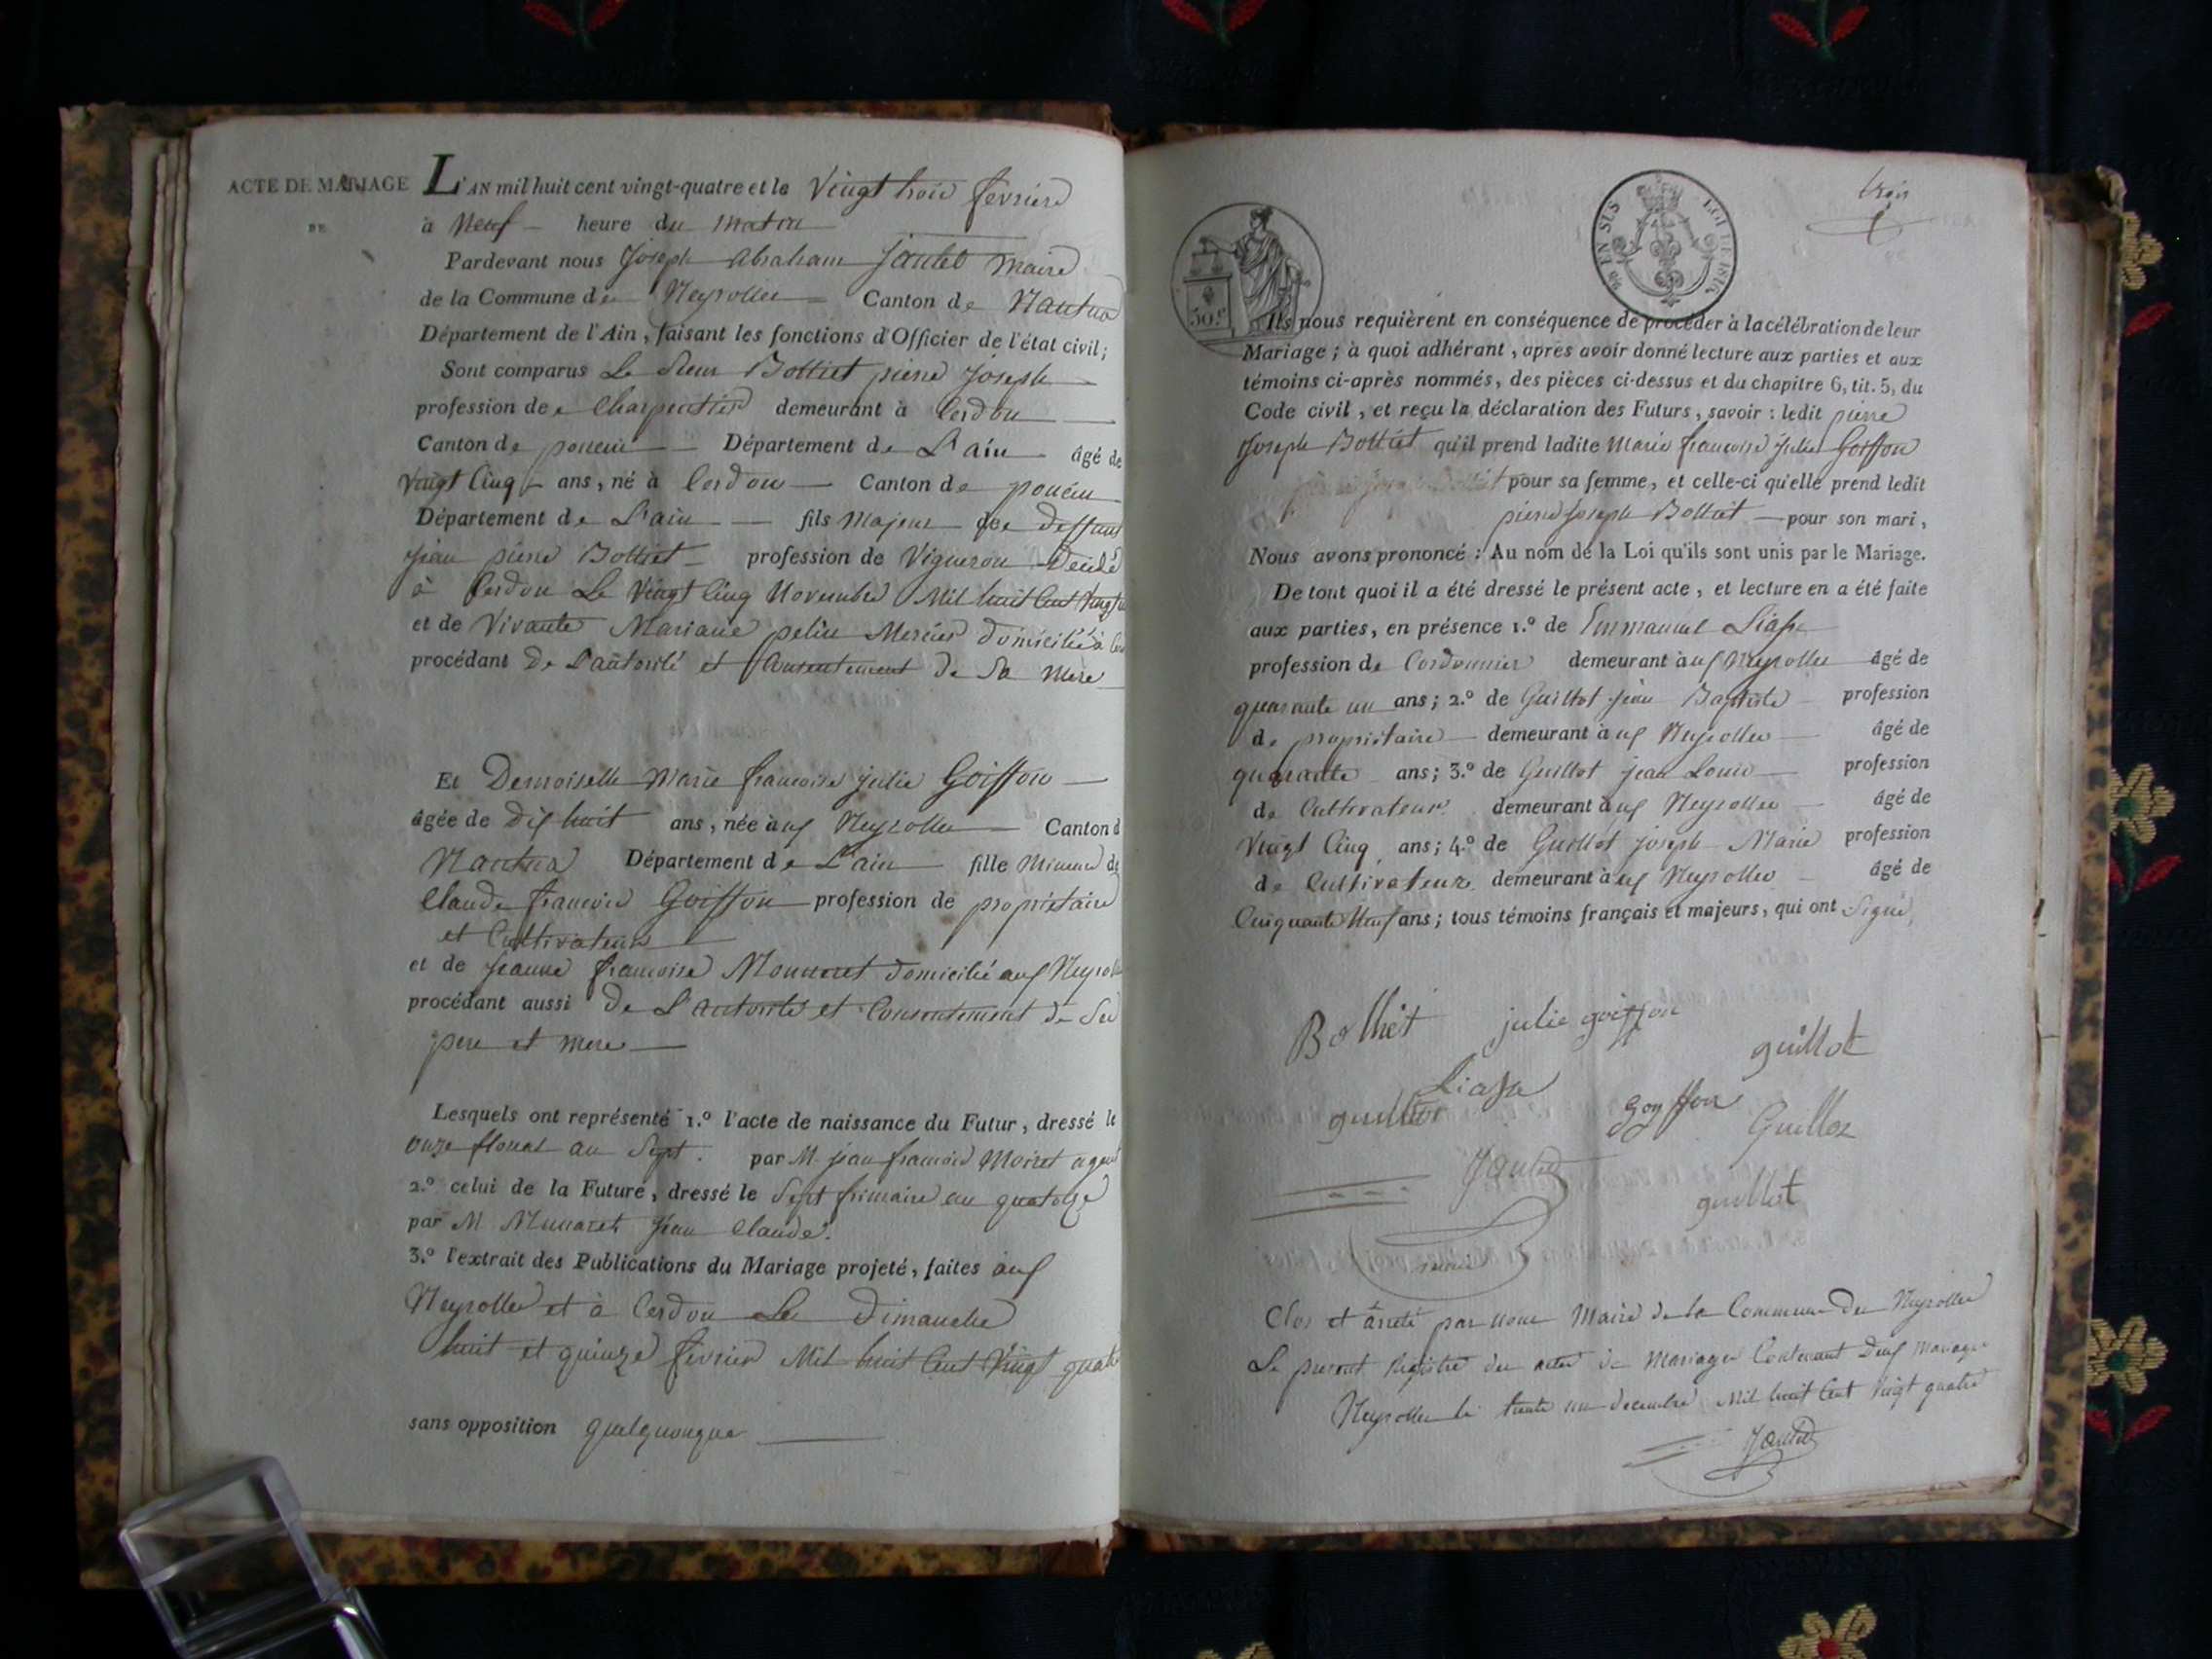 ACTE DE MARIAGE
DE
L'AN mil huit cent vingt-quatre et le Vingt trois fevrier
à Neuf heure du matin
Pardevant nous Joseph Abraham Jantet Maire
de la Commune des Neyrolles Canton de Nantua
Département de l'Ain, faisant les fonctions d'Officier de l'état civil;
Sont comparus Le Sieur Bolliet pierre Joseph
profession de Charpentier demeurant à Cerdon
Canton de poncin Département de L'ain âgé de
Vingt Cinq ans, né à Cerdon Canton de poncin
Département de L'ain fils Majeur de deffunt
Jean pierre Bolliet profession de Vigneron Décédé
à Cerdon Le Vingt Cinq Novembre Mil huit Cent Vingt
et de Vivante Mariane pelin Mercier domiciliée à
procédant de L'autorité et Consentement de Sa Mere
Et Demoiselle Marie francoise julie Goiffon
âgée de Dix huit ans, née aux Neyrolles Canton d
Nantua Département de L'ain fille Mineure de
Claude francois Goiffon profession de propriétaire
et Cultivateur
et de Jeanne francoise Monneret domicilié aux Neyrolles
procédant aussi de L'autorité et Consentement de Ses
pere et mere
Lesquels ont représenté 1.° l'acte de naissance du Futur, dressé le
onze floreal an Sept. par M. jean francois Moiret agent
2.° celui de la Future, dressé le Sept frimaire an quatorze
par M Munaret Jean Claude.
3.° l'extrait des Publications du Mariage projeté, faites aux
Neyrolles et à Cerdon Les Dimanche
huit et quinze fevrier Mil huit Cent Vingt quatre
sans opposition quelquonque
trois
30.c
EN SUS LOI DE 1816
Ils nous requièrent en conséquence de procéder à la célébration de leur
Mariage; à quoi adhérant, après avoir donné lecture aux parties et aux
témoins ci-après nommés, des pièces ci-dessus et du chapitre 6, tit. 5, du
Code civil, et reçu la déclaration des Futurs, savoir: ledit pierre
Joseph Bolliet qu'il prend ladite Marie francoise Julie Goiffon
pour sa femme, et celle-ci qu'elle prend ledit
pierre Joseph Bolliet pour son mari,
Nous avons prononcé: Au nom de la Loi qu'ils sont unis par le Mariage.
De tout quoi il a été dressé le présent acte, et lecture en a été faite
aux parties, en présence 1.° de Emmanuel Liasse
profession de Cordonnier demeurant aux Neyrolles âgé de
quarante un ans; 2.° de Guillot jean Baptiste profession
de propriétaire demeurant aux Neyrolles âgé de
quarante ans; 3.° de Guillot jean Louis profession
de Cultivateur demeurant aux Neyrolles âgé de
Vingt Cinq ans; 4.° de Guillot joseph Marie profession
de Cultivateur demeurant aux Neyrolles âgé de
Cinquante Neuf ans; tous témoins français et majeurs, qui ont Signé,
Bolliet julie goiffon guillot
Liasse
guillot goyffon Guillot
Jantet
guillot
maire
Clos et arreté par nous Maire de la Commune des Neyrolles
Le present Registre des actes de Mariages Contenant Deux mariages
Neyrolles le trente un decembre Mil huit Cent Vingt quatre
Jantet